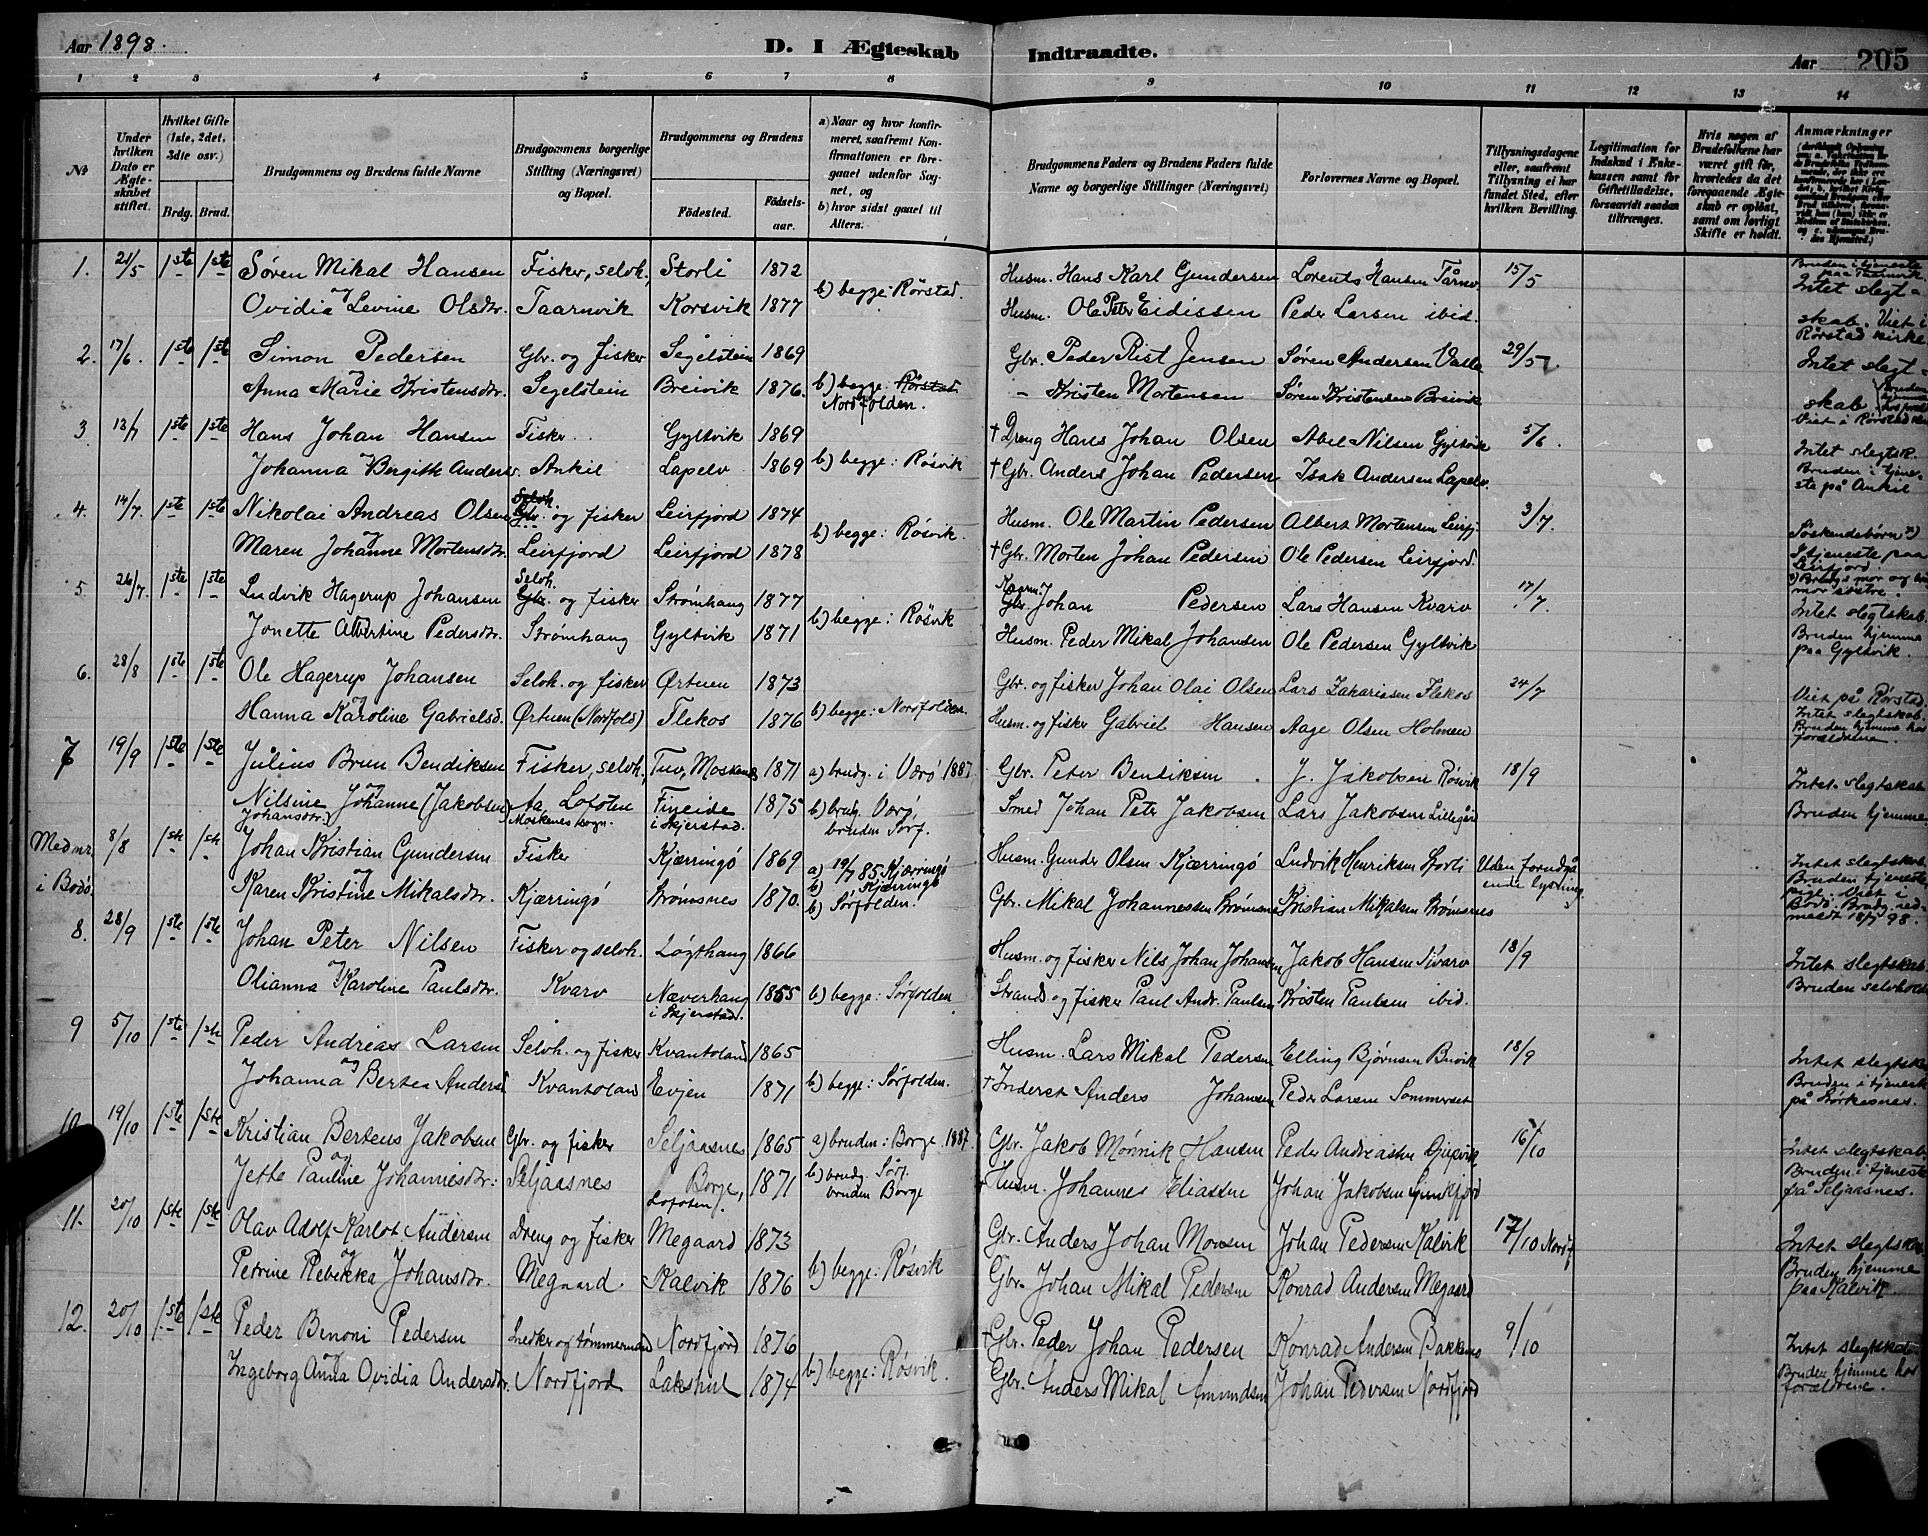 Aar 1898.
D. I Ægteskab
Indtraadte.
Aar 205
1 2 3 4 5 6 7 8 9 10 11 12 13 14
No.
Under hvilken Dato er Ægteskabet stiftet.
Hvilket Gifte (1ste, 2det, 3die osv.)
Brdg. Brud.
Brudgommens og Brudens fulde Navne
Brudgommens borgerlige Stilling (Næringsvei) og Bopæl.
Brudgommens og Brudens
Fødested. Fødselsaar.
a) Naar og hvor konfirmeret, saafremt Konfirmationen er foregaaet udenfor Sognet, og
b) hvor sidst gaaet til Alters.
Brudgommens Faders og Brudens Faders fulde Navne og borgerlige Stillinger (Næringsvei)
Forlovernes Navne og Bopæl.
Tillysningsdagene eller, saafremt Tillysning ei har fundet Sted, efter hvilken Bevilling.
Legitimation for Indskud i Enkekassen samt for Giftetilladelse, forsaavidt saadan tiltrænges.
Hvis nogen af Brudefolkene har været gift før, hvorledes da det foregaaende Ægteskab er opløst, samt om lovligt Skifte er holdt.
Anmærkninger
1. 21/5 1ste 1ste Søren Mikal Hansen Fisker, selvh. Storli 1872 Husm. Hans Karl Gundersen Lorents Hansen Tårnv 15/5 Bruden i tjeneste paa Taarnvik
og b) begge: Rørstad. Intet slegt-
Ovidia Levine Olsdtr. Taarnvik Korsvik 1877 Husm. Ole Peter Eidissen Peder Larsen ibid. skab. Viet i Rørstad kirke
2. 17/6. 1ste 1ste Simon Pedersen Gbr. og fisker Segelstein 1869 Gbr. Peder Rist Jensen Søren Andersen Valle 29/5 Intet slegt-
og Anna Marie Kristensdtr. Segelstein Breivik 1876. b) begge: Rørstad Nordfolden. – Kristen Mortensen Søren Kristensen Breivik skab Viet i Rørstad
3. 13/7 1ste 1ste Hans Johan Hansen Fisker Gyltvik 1869 † Dreng Hans Johan Olsen Abel Nilsen Gyltvik 5/6. Intet slegtsk.
og Johanna Bergith Andersd. Ankil Lapelv 1869 b) begge: Røsvik † Gbr. Anders Johan Pedersen Isak Andersen Lapelv. Bruden i tjeneste på Ankil
4. 14/7. 1ste 1ste Nikolai Andreas Olsen Selvh. Gbr. og fisker Leirfjord 1874 Husm. Ole Martin Pedersen Albert Mortensen Leirfj. 3/7. Søskendebørn
og Maren Johanne Mortensdtr. Leirfjord Leirfjord 1878 b) begge: Røsvik. † Gbr. Morten Johan Pedersen Ole Pedersen Leirfjord. I tjeneste paa Leirfjord.
5. 26/7. 1ste 1ste Ludvik Hagerup Johansen Selvh. Gbr. og fisker Strømhaug 1877 Gbr. Johan Pedersen Lars Hansen Kvarv 17/7. Intet slegtskab.
Jonette Albertine Pedersdtr. Strømhaug Gyltvik 1871 b) begge: Røsvik Husm. Peder Mikal Johansen Ole Pedersen Gyltvik Bruden hjemme paa Gyltvik.
6. 28/8 1ste 1ste Ole Hagerup Johansen Selvh. og fisker Ørtuen 1873 Gbr. og fisker Johan Olai Olsen Lars Zakariasen Flekos 24/7 Viet på Rørstad.
og Hanna Karoline Gabrielsd. Ørtuen (Nordfold) Flekos 1876 b) begge: Nordfolden. Husm. og fisker Gabriel Hansen Aage Olsen Holmen Intet slegtskab. Bruden hjemme hos forældrene.
7 19/9 1ste 1ste Julius Brun Bendiksen Fisker, selvh. Tuv, Moskenes 1871 a) brudg. i Værø 1887 Gbr. Peter Bendiksen J. Jakobsen Røsvik 18/9 Intet slegtskab
og Nilsine Johanne (Jakobsen) Johansdtr. Aa, Lofoten Moskenes sogn. Fineide i Skjerstad. 1875 b) brudg. Værø, bruden Sørf. Smed Johan Peter Jakobsen Lars Jakobsen Lillegård Bruden hjemme
Med nr. i Bodø. 8/8 1ste 1ste Johan Kristian Gundersen Fisker Kjærringø 1869 a) 19/7 85 Kjærringø Husm. Gunder Olsen Kjærringø Ludvik Henriksen Storli Uden forudgående lysning. Intet slegtskab
og Karen Kristine Mikalsdtr. Kjærringø Strømsnes 1870. b) Kjærringø b) Sørfolden. Gbr. Mikal Johannessen Strømsnes Kristian Mikalsen Strømsnes Bruden tjenestepige. Viet i Bodø. Brudg. indmeldt 18/7 98.
8. 28/9 1ste 1ste Johan Peter Nilsen Fisker og selvh. Løgthaug 1866 Husm. og fisker Nils Johan Johansen Jakob Hansen Kvarv 18/9 Intet slegtskab
og Olianna Karoline Paulsdtr. Kvarv Næverhaug i Skjerstad. 1855 b) begge: Sørfolden Strands. og fisker Paul Andr. Paulsen Kristen Paulsen ibid. Bruden selvhold
9 5/10 1ste 1ste Peder Andreas Larsen Selvh. og fisker Kvantoland 1865 Husm. Lars Mikal Pedersen Elling Bjørnsen Buvik 18/9 Intet slegtskab
og Johanna Bertea Andersd Kvantoland Evjen 1871 b) begge: Sørfolden. † Inderst Anders Johansen Peder Larsen Sommerset Bruden i tjeneste på Størkesnes.
10 19/10 1ste 1ste Kristian Berteus Jakobsen Gbr. og fisker Seljaasnes 1865 a) bruden: Borge 1887. Gbr. Jakob Mønnik Hansen Peder Andreassen Djupvik 16/10 Intet slegtskab.
og Jette Pauline Johannesdtr. Seljaasnes Borge, Lofoten. 1871 b) brudg. Sørf. bruden Borge Husm. Johannes Eliassen Johan Jakobsen Bruden i tjeneste på Seljaasnes.
11. 20/10 1ste 1ste Olav Adolf Karlot Andersen Dreng og fisker Megaard 1873 Gbr. Anders Johan Monsen Johan Pedersen Kalvik 17/10 Nordf Intet slegtskab
og Petrine Rebekka Johansdtr. Megaard. Kalvik 1876 b) begge: Røsvik Gbr. Johan Mikal Pedersen Konrad Andersen Megaard Bruden hjemme paa Kalvik.
12. 20/10 1ste 1ste Peder Benoni Pedersen Snedker og tømmermand Nordfjord 1876 † Gbr. Peder Johan Pedersen Konrad Andersen Bakkens 9/10 Intet slegtskab
og Ingeborg Anna Ovidia Andersdtr. Nordfjord Lakshul 1874 b) begge: Røsvik. Gbr. Anders Mikal Amundsen Johan Pedersen Nordfjord Bruden hjemme hos forældrene.